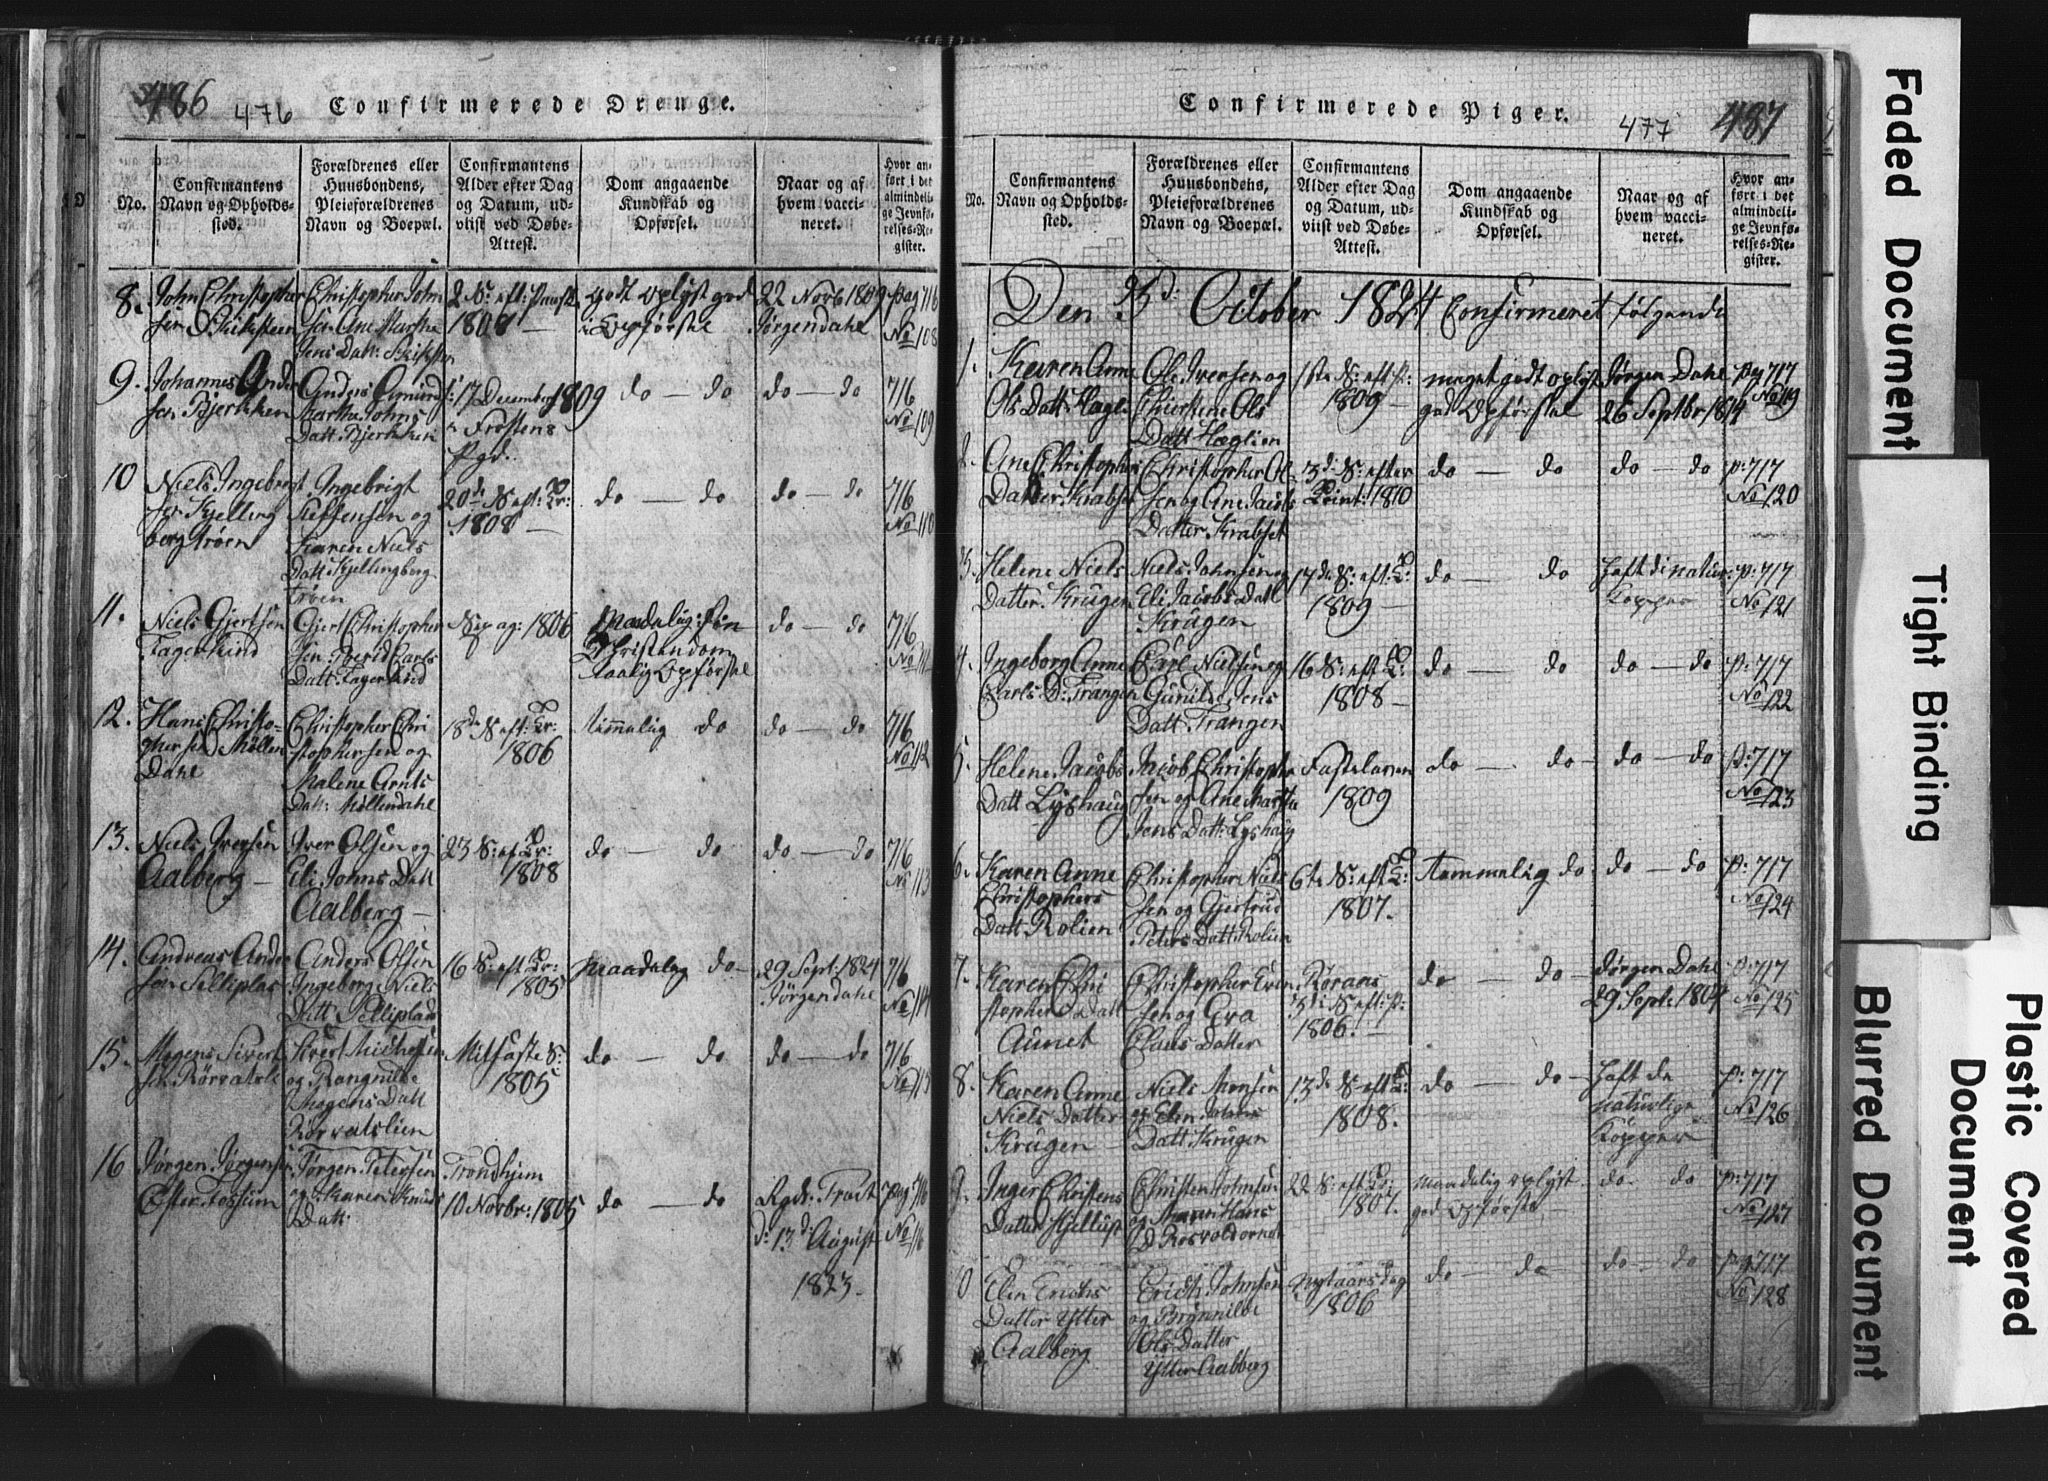 486 476 Confirmerede Drenge.
No.
Confirmantens Navn og Opholds-sted.
Forældrenes eller Huusbondens, Pleieforældrenes Navn og Boepæl.
Confirmantens Alder efter Dag og Datum, ud-viist ved Døbe-Attest.
Dom angaaende Kundskab og Opførsel.
Naar og af hvem vacci-neret.
Hvor an-ført i det almindeli-ge Jevnfø-relses-Re-gister.
8. John Christopher
Christopher John
2 S: eft: Paaske 1808
godt oplyst god Opførsel
22 Novb 1809 Jørgen Dahl
pag 716 No 108
9. Johannes Ander
sen Bjerkken
Anders Amund
Martha Johns
Datt Bjerkken
17 December 1809
Frostens Pgd.
do — do
do — do
716 No 109
10 Niels Ingebrigt
sen Kjelling
bergtrøen
Ingebrigt
Steffensen og
Karen Niels
Datt. Kjellingberg
Trøen
20de S: eft: Tr:
1808 —
do — do
do — do
716 No 110
11. Niels Gjertsen
Fagerlund
Gjert Christopher
sen Berid Carls
Datt. Fagerlund
1806
Maadelig
Christendom
Opførsel
do — do
716 No 111
12. Hans Christo-
phersen Møllen
Dahl
Christopher Chri
stophersen og
Malene Arnts
Datt: Møllendahl
18de S: eft: Tr:
1806
temmelig do
do — do
716 No 112
13. Niels Iversen
Aalberg —
Iver Olsen og
Eli Johns Datt
Aalberg —
23 S: eft Tr:
1808
do — do
do — do
716 No 113
14. Andreas Ander
sen
Anders Olsen
Ingeborg Niels
Datt
16 S: eft Tr:
1805
maadelig do
29 Sept: 1824
Jørgen Dahl
716 No 114
15. Mogens Sivert
sen
Sivert Michelsen
og Rangnilde
Mogens Datt
Rørvatslien
Mitfaste S:
1805
do — do
do — do
716 No 115
16 Jørgen Jørgensen
Øster Fostum
Jørgen Petersen
og Karen Knuds
Datt:
Trondhjem
10 Novbr: 1805
do — do
d: 13d August
1823.
pag 716
No 116
Confirmerede Piger. 477 487
No.
Confirmantens Navn og Opholds-sted.
Forældrenes eller Huusbondens, Pleieforældrenes Navn og Boepæl.
Confirmantens Alder efter Dag og Datum, ud-viist ved Døbe-Attest.
Dom angaaende Kundskab og Opførsel.
Naar og af hvem vacci-neret.
Hvor an-ført i det almindeli-ge Jevnfø-relses-Re-gister.
Den October 1824 Confirmeret følgende
1. Karen Anne
Ols Datt
Ole Iversen og
Ols
Datt Hæglien
1ste S: eft
1809 —
meget godt oplyst
god Opførsel
Jørgen Dahl
26 Septbr 1814
pag 717
No 119
2. Ane Christophers
Datter Krabset
Christopher Ol
sen og Ane Jacobs
Datter Krabset
3d S: efter
Trint: 1810
do — do
do — do
p: 717
No 120
3. Helene Niels
Datter Krugen
Niels Johnsen og
Eli Jacobs Datt
Krugen
17de S: eft: Tr:
1809 —
do — do
haft de natur:
Kopper
p: 717
No 121
4. Ingeborg Anne
Carls D: Trangen
Carl Nielsen og
Gunild Jens
Datt Trangen
16 S: eft Tr:
1808 —
do — do
do — do
p: 717
No 122
5. Helene Jacobs
Datt Lyshaug
Jacob Christopher
sen og Ane Martha
Jens Datt: Lyshaug
Fastelaven
1809
do — do
do — do
p: 717
No 123
6. Karen Anne
Christophers
Datt Rolien
Christopher Niels
sen og Gjertrud
Peters Datt: Rolien
6te S: eft Tr:
1807.
temmelig do
do — do
p: 717
No 124
7. Karen Chri
stopher Datt
Aunet
Christopher Even
sen og Eva
Claus Datter
Røraas
1806. —
do — do
Jørgen Dahl
29 Sept: 1804
p: 717
No 125
8. Karen Anne
Niels Datter
Krugen
Niels Monsen
og Elen Johns
Datt Krugen
13de S: eft Tr:
1808.
do — do
haft de
naturlige
Kopper
p: 717
No 126
9. Inger Christens
Datter
Christen Johnsen
og Maren Hans
D
22 S: eft Tr:
1807.
maadelig oplyst
god Opførsel —
do. do
p: 717
No 127
10 Elen Erichs
Datter Ytter
Aalberg
Erich Johnsen
og Brønnilde
Ols Datter
Ytter Aalberg
Nytaarsdag
1806
do — do
do — do
pag 717
No 128
Faded Document
Tight Binding
Blurred Document
Plastic Covered
Document